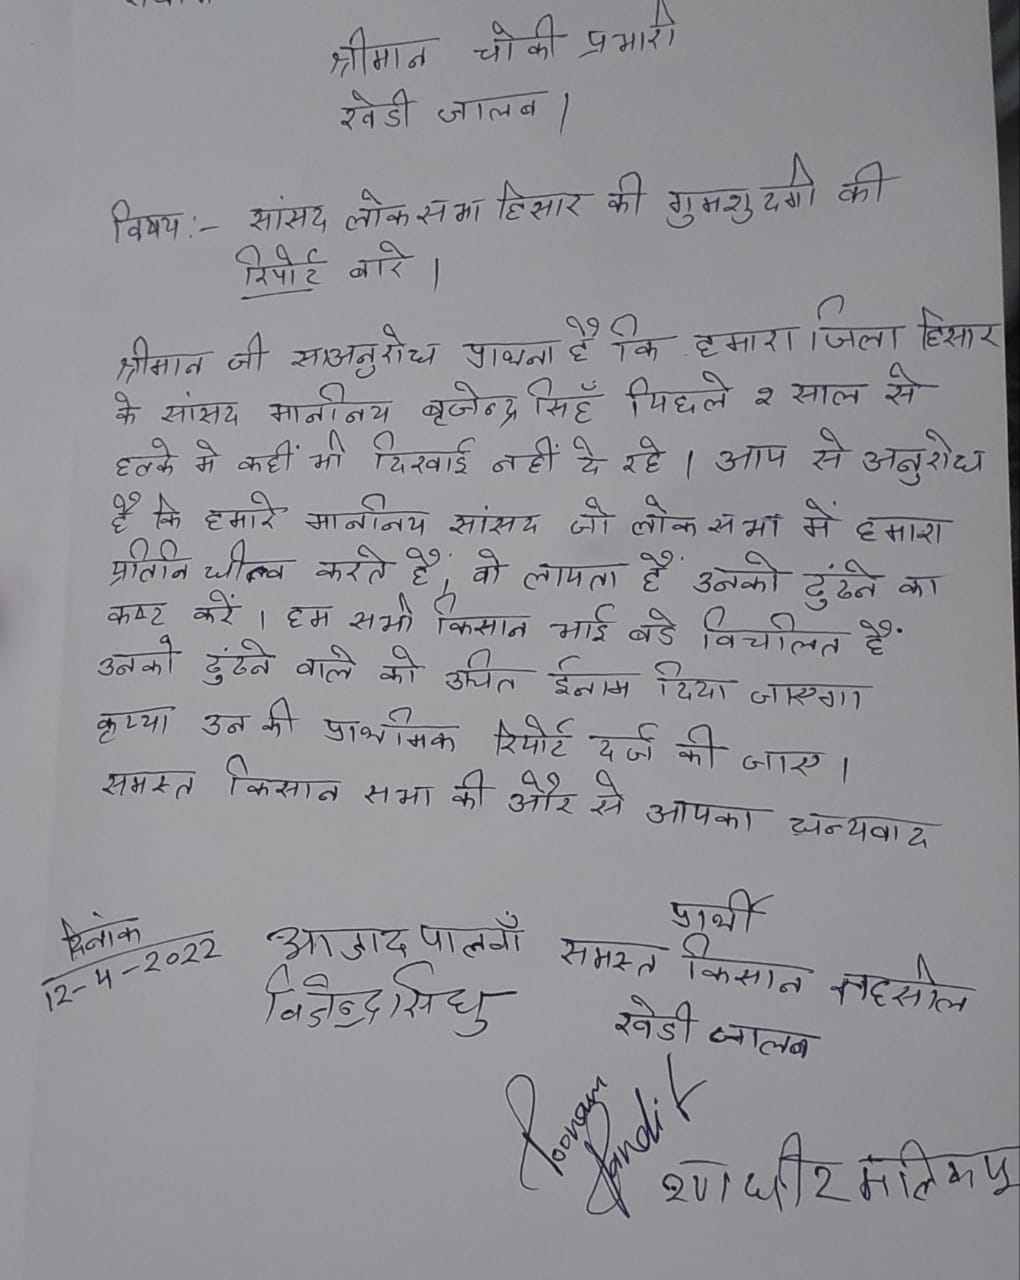 श्रीमान चोकी प्रभारी
खेडी जालब।
विषय:- सांसद लोकसभा हिसार की गुमशुदगी की
रिपोर्ट बारे।
श्रीमान जी साअनुरोध प्राथना है कि हमारा जिला हिसार
के सांसद माननिय बृजेन्द्र सिहँ पिछले २ साल से
हलके मे कहीं भी दिखाई नहीं दे रहे। आप से अनुरोध
है कि हमारे माननिय सांसद जो लोकसभा में हमारा
प्रतिनिधीत्व करते हैं, वो लापता हैं उनको ढुंढने का
कष्ट करें। हम सभी किसान भाई बडे विचलित हैं
उनको ढुंढने वाले को उचित ईनाम दिया जाएगा
कृप्या उनकी प्राथमिक रिपोर्ट दर्ज की जाए।
समस्त किसान सभा की और से आपका धन्यवाद
प्रार्थी
दिनांक
12-4-2022
आजाद पालवाँ समस्त किसान तहसील
विजेन्द्र सिंधु खेडी जालब
Poonam
Pandit
रणधीर मलिकपु